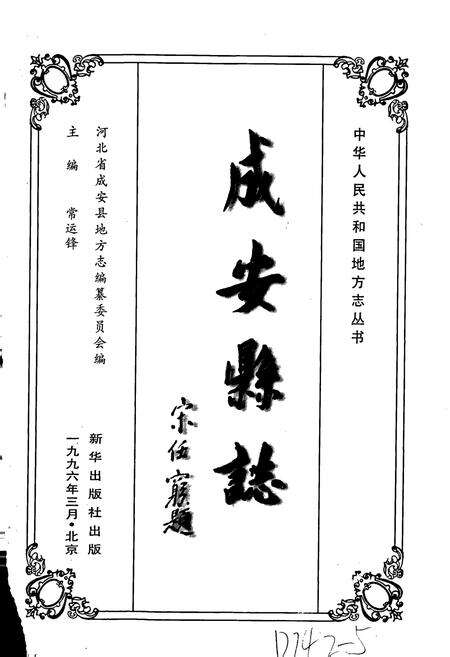 中华人民共和国地方志丛书
成安縣誌
宋任窮题
河北省成安县地方志编纂委员会编
主编 常运锋
新华出版社出版
一九九六年三月·北京
D742-5